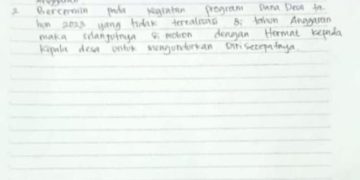 2. Bercermin pada kegiatan program Dana Desa ta
hun 2023 yang tidak terealisasi di tahun Anggaran
maka selanjutnya di mohon dengan Hormat kepada
kepala desa untuk mengundurkan Diri secepatnya.